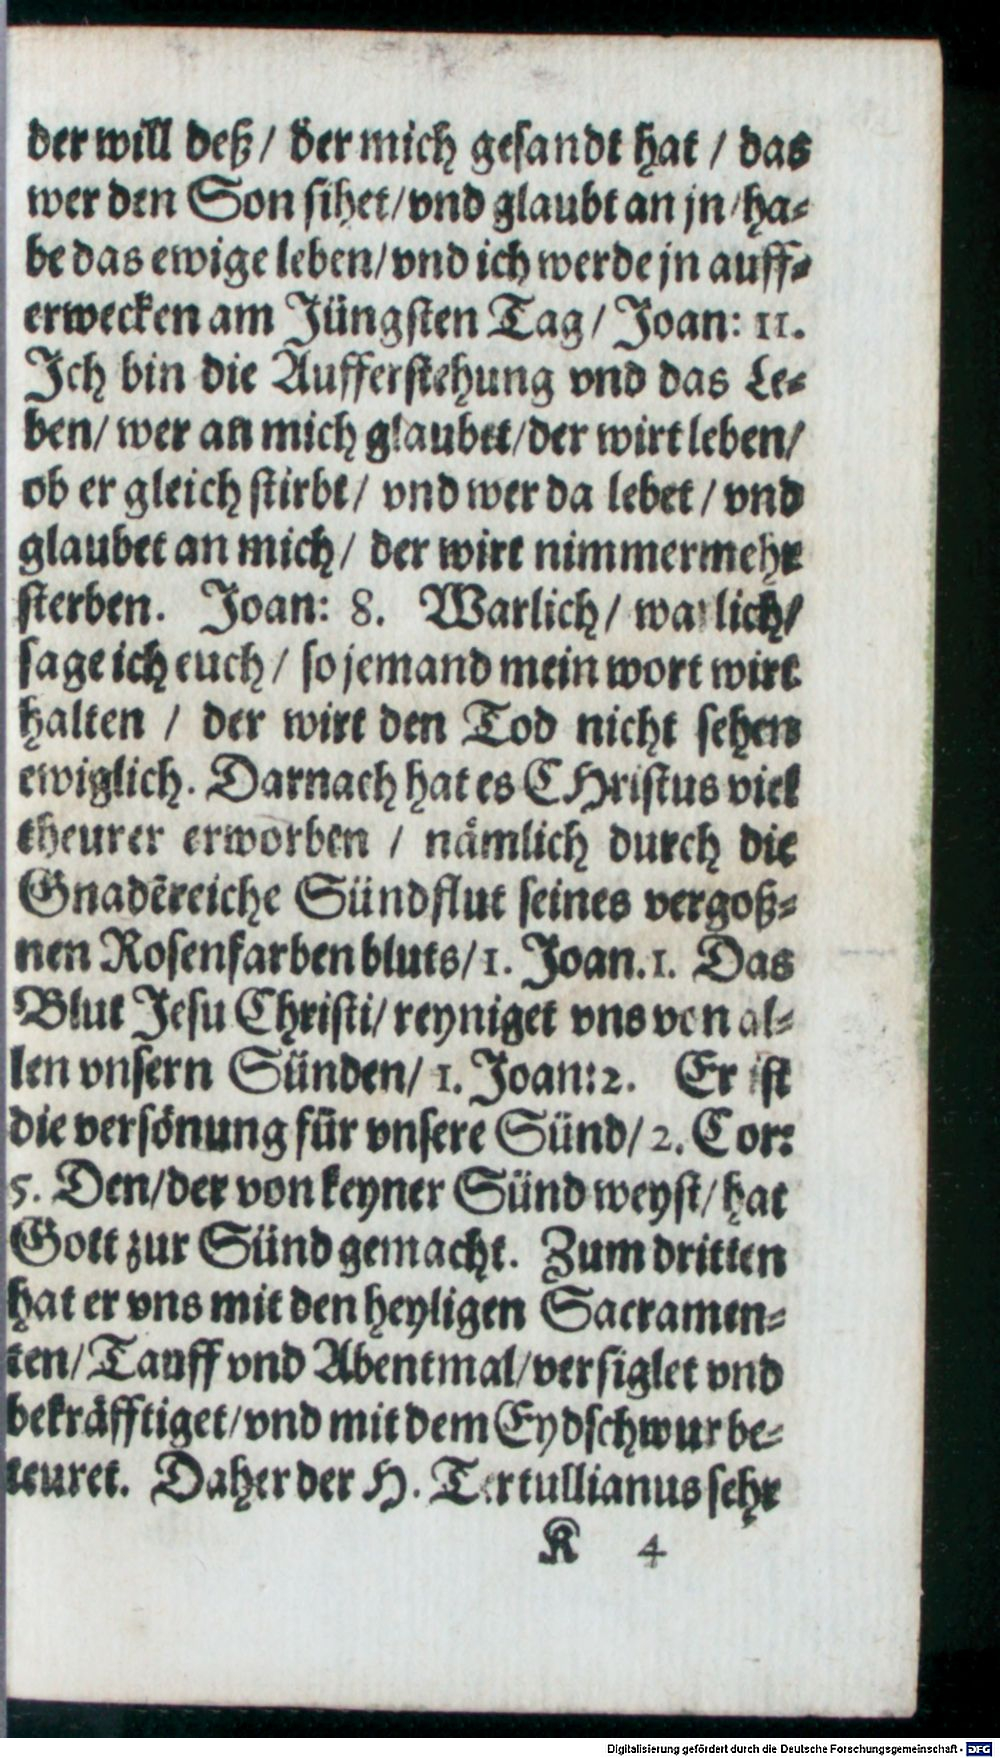 der will deß / der mich gesandt hat / das
wer den Son sihet / vnd glaubt an jn / ha-
be das ewige leben / vnd ich werde jn auff-
erwecken am Jüngsten Tag / Joan: 11.
Ich bin die Aufferstehung vnd das Le-
ben / wer an mich glaubet / der wirt leben /
ob er gleich stirbt / vnd wer da lebet / vnd
glaubet an mich / der wirt nimmermehr
sterben. Joan: 8. Warlich / warlich /
sage ich euch / so jemand mein wort wirt
halten / der wirt den Tod nicht sehen
ewiglich. Darnach hat es CHristus viel
theurer erworben / nämlich durch die
Gnadẽreiche Sündflut seines vergoß-
nen Rosenfarben bluts / 1. Joan. 1. Das
Blut Jesu Christi / reyniget vns von al-
len vnsern Sünden / 1. Joan: 2. Er ist
die versönung für vnsere Sünd / 2. Cor:
5. Den / der von keyner Sünd weyst / hat
Gott zur Sünd gemacht. Zum dritten
hat er vns mit den heyligen Sacramen-
ten / Tauff vnd Abentmal / versiglet vnd
bekräfftiget / vnd mit dem Eydschwur be-
teuret. Daher der H. Tertullianus sehr
K 4
Digitalisierung gefördert durch die Deutsche Forschungsgemeinschaft - DFG